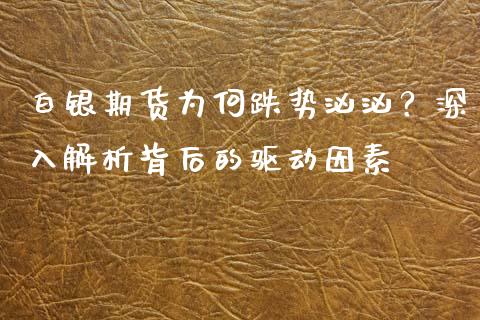 白银期货为何跌势汹汹？深
入解析背后的驱动因素